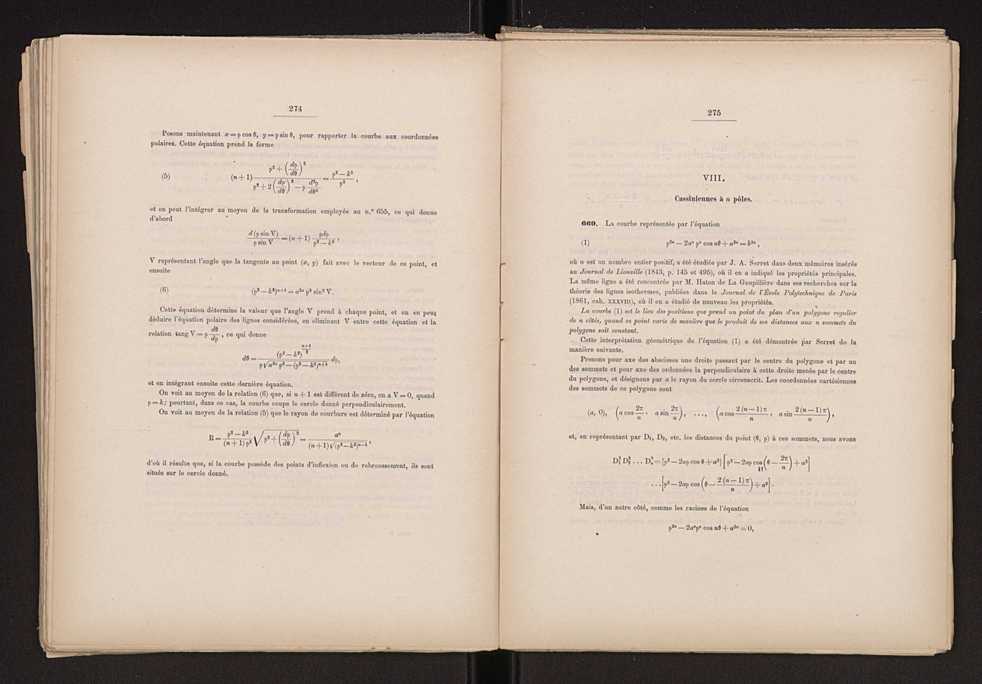 274
Posons maintenant x = ρ cos θ, y = ρ sin θ, pour rapporter la courbe aux coordonnées
polaires. Cette équation prend la forme
(5) (n + 1) \frac{ρ² + (dρ/dθ)²}{ρ² + 2(dρ/dθ)² − ρ d²ρ/dθ²} = \frac{ρ² − k²}{ρ²},
et on peut l'intégrer au moyen de la transformation employée au n.º 655, ce qui donne
d'abord
\frac{d(ρ sin V)}{ρ sin V} = (n + 1) \frac{ρdρ}{ρ² − k²},
V représentant l'angle que la tangente au point (x, y) fait avec le vecteur de ce point, et
ensuite
(6) (ρ² − k²)ⁿ⁺¹ = a²ⁿ ρ² sin² V.
Cette équation détermine la valeur que l'angle V prend à chaque point, et on en peut
déduire l'équation polaire des lignes considérées, en éliminant V entre cette équation et la
relation tang V = ρ \frac{dθ}{dρ}, ce qui donne
dθ = \frac{(ρ² − k²)^{\frac{n+1}{2}}}{ρ√(a²ⁿ ρ² − (ρ² − k²)ⁿ⁺¹)} dρ,
et en intégrant ensuite cette dernière équation.
On voit au moyen de la relation (6) que, si n + 1 est différent de zéro, on a V = 0, quand
ρ = k; pourtant, dans ce cas, la courbe coupe le cercle donné perpendiculairement.
On voit au moyen de la relation (5) que le rayon de courbure est déterminé par l'équation
R = \frac{ρ² − k²}{(n + 1) ρ²} √(ρ² + (dρ/dθ)²) = \frac{aⁿ}{(n + 1) √(ρ² − k²)ⁿ⁻¹},
d'où il résulte que, si la courbe possède des points d'inflexion ou de rebroussement, ils sont
situés sur le cercle donné.
275
VIII.
Cassiniennes à n pôles.
660. La courbe représentée par l'équation
(1) ρ²ⁿ − 2aⁿ ρⁿ cos nθ + a²ⁿ = b²ⁿ,
où n est un nombre entier positif, a été étudiée par J. A. Serret dans deux mémoires insérés
au Journal de Liouville (1843, p. 145 et 495), où il en a indiqué les propriétés principales.
La même ligne a été rencontrée par M. Haton de La Goupillière dans ses recherches sur la
théorie des lignes isothermes, publiées dans le Journal de l'École Polytechnique de Paris
(1861, cah. XXXVIII), où il en a étudié de nouveau les propriétés.
La courbe (1) est le lieu des positions que prend un point du plan d'un polygone regulier
de n côtés, quand ce point varie de manière que le produit de ses distances aux n sommets du
polygone soit constant.
Cette interprétation géométrique de l'équation (1) a été démontrée par Serret de la
manière suivante.
Prenons pour axe des abscisses une droite passant par le centre du polygone et par un
des sommets et pour axe des ordonnées la perpendiculaire à cette droite menée par le centre
du polygone, et désignons par a le rayon du cercle circonscrit. Les coordonnées cartésiennes
des sommets de ce polygone sont
(a, 0), (a cos \frac{2π}{n}, a sin \frac{2π}{n}), ..., (a cos \frac{2(n − 1)π}{n}, a sin \frac{2(n − 1)π}{n}),
et, en représentant par D₁, D₂, etc. les distances du point (θ, ρ) à ces sommets, nous avons
D₁² D₂² ... Dₙ² = [ρ² − 2aρ cos θ + a²] [ρ² − 2aρ cos (θ − \frac{2π}{n}) + a²]
... [ρ² − 2aρ cos (θ − \frac{2(n − 1)π}{n}) + a²].
Mais, d'un autre côté, comme les racines de l'équation
ρ²ⁿ − 2aⁿρⁿ cos nθ + a²ⁿ = 0,